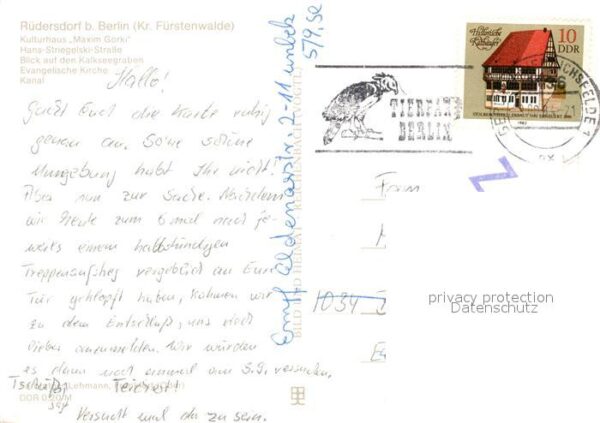 Rüdersdorf b. Berlin (Kr. Fürstenwalde)
Kulturhaus „Maxim Gorki"
Hans-Striegelski-Straße
Blick auf den Kalkseegraben
Evangelische Kirche
Kanal
Hallo!
Euch die Karte ruhig
genau an. So'ne schöne
Umgebung habt Ihr nicht!
Aber nun zur Sache. Nachdem
wir heute zum 6 mal nach je-
weils einem halbstündigen
Treppenaufstieg vergeblich an Eure
Tür geklopft haben, kamen wir
zu dem Entschluß, uns
lieber anzumelden. Wir würden
es dann noch einmal am 5.9. versuchen.
Tschüß! Lehmann,
DDR 0,20 M
Versucht mal da zu sein.
Empf. Eldenaer str. 2-11 unbek
579, Se
BILD UND HEIMAT REICHENBACH (VOGTL)
Historische Rathäuser
10
DDR
TIERPARK
BERLIN
Frau
1034
privacy protection
Datenschutz